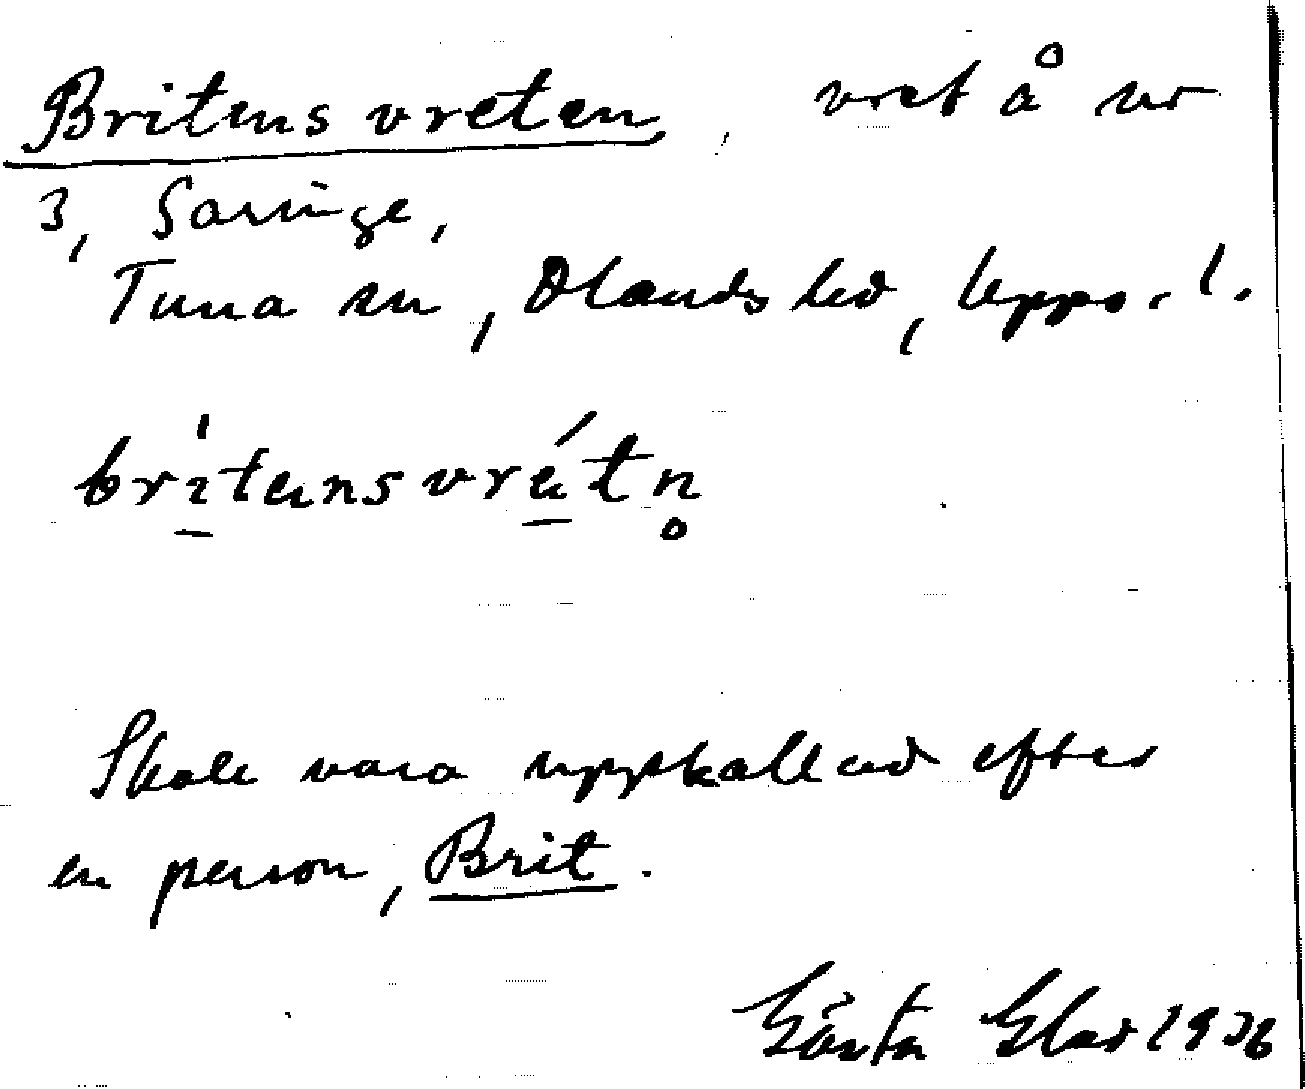 Britens vreten, vret å nr
3, Saringe,
Tuna sn, Olands hd, Upps. l.
britens vretn̥
Skole vara uppkallad efter
en person, Brit.
Gösta Glad 1936